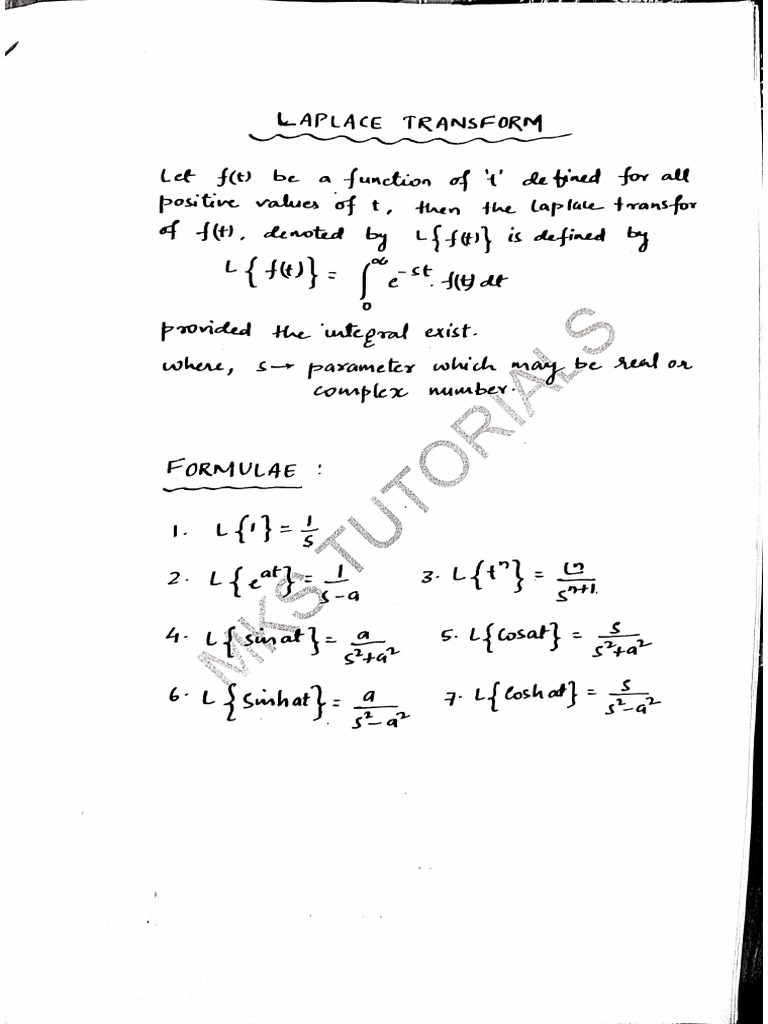 LAPLACE TRANSFORM
Let f(t) be a function of 't' defined for all
positive values of t, then the Laplace transfor
of f(t), denoted by L{f(t)} is defined by
L{f(t)} = ∫₀^∞ e^-st. f(t) dt
provided the integral exist.
where, s → parameter which may be real or
complex number.
FORMULAE :
1. L{1} = 1/s
2. L{e^at} = 1/(s-a) 3. L{t^n} = |n/s^(n+1)
4. L{sinat} = a/(s²+a²) 5. L{cosat} = s/(s²+a²)
6. L{sinhat} = a/(s²-a²) 7. L{coshat} = s/(s²-a²)
MKS TUTORIALS